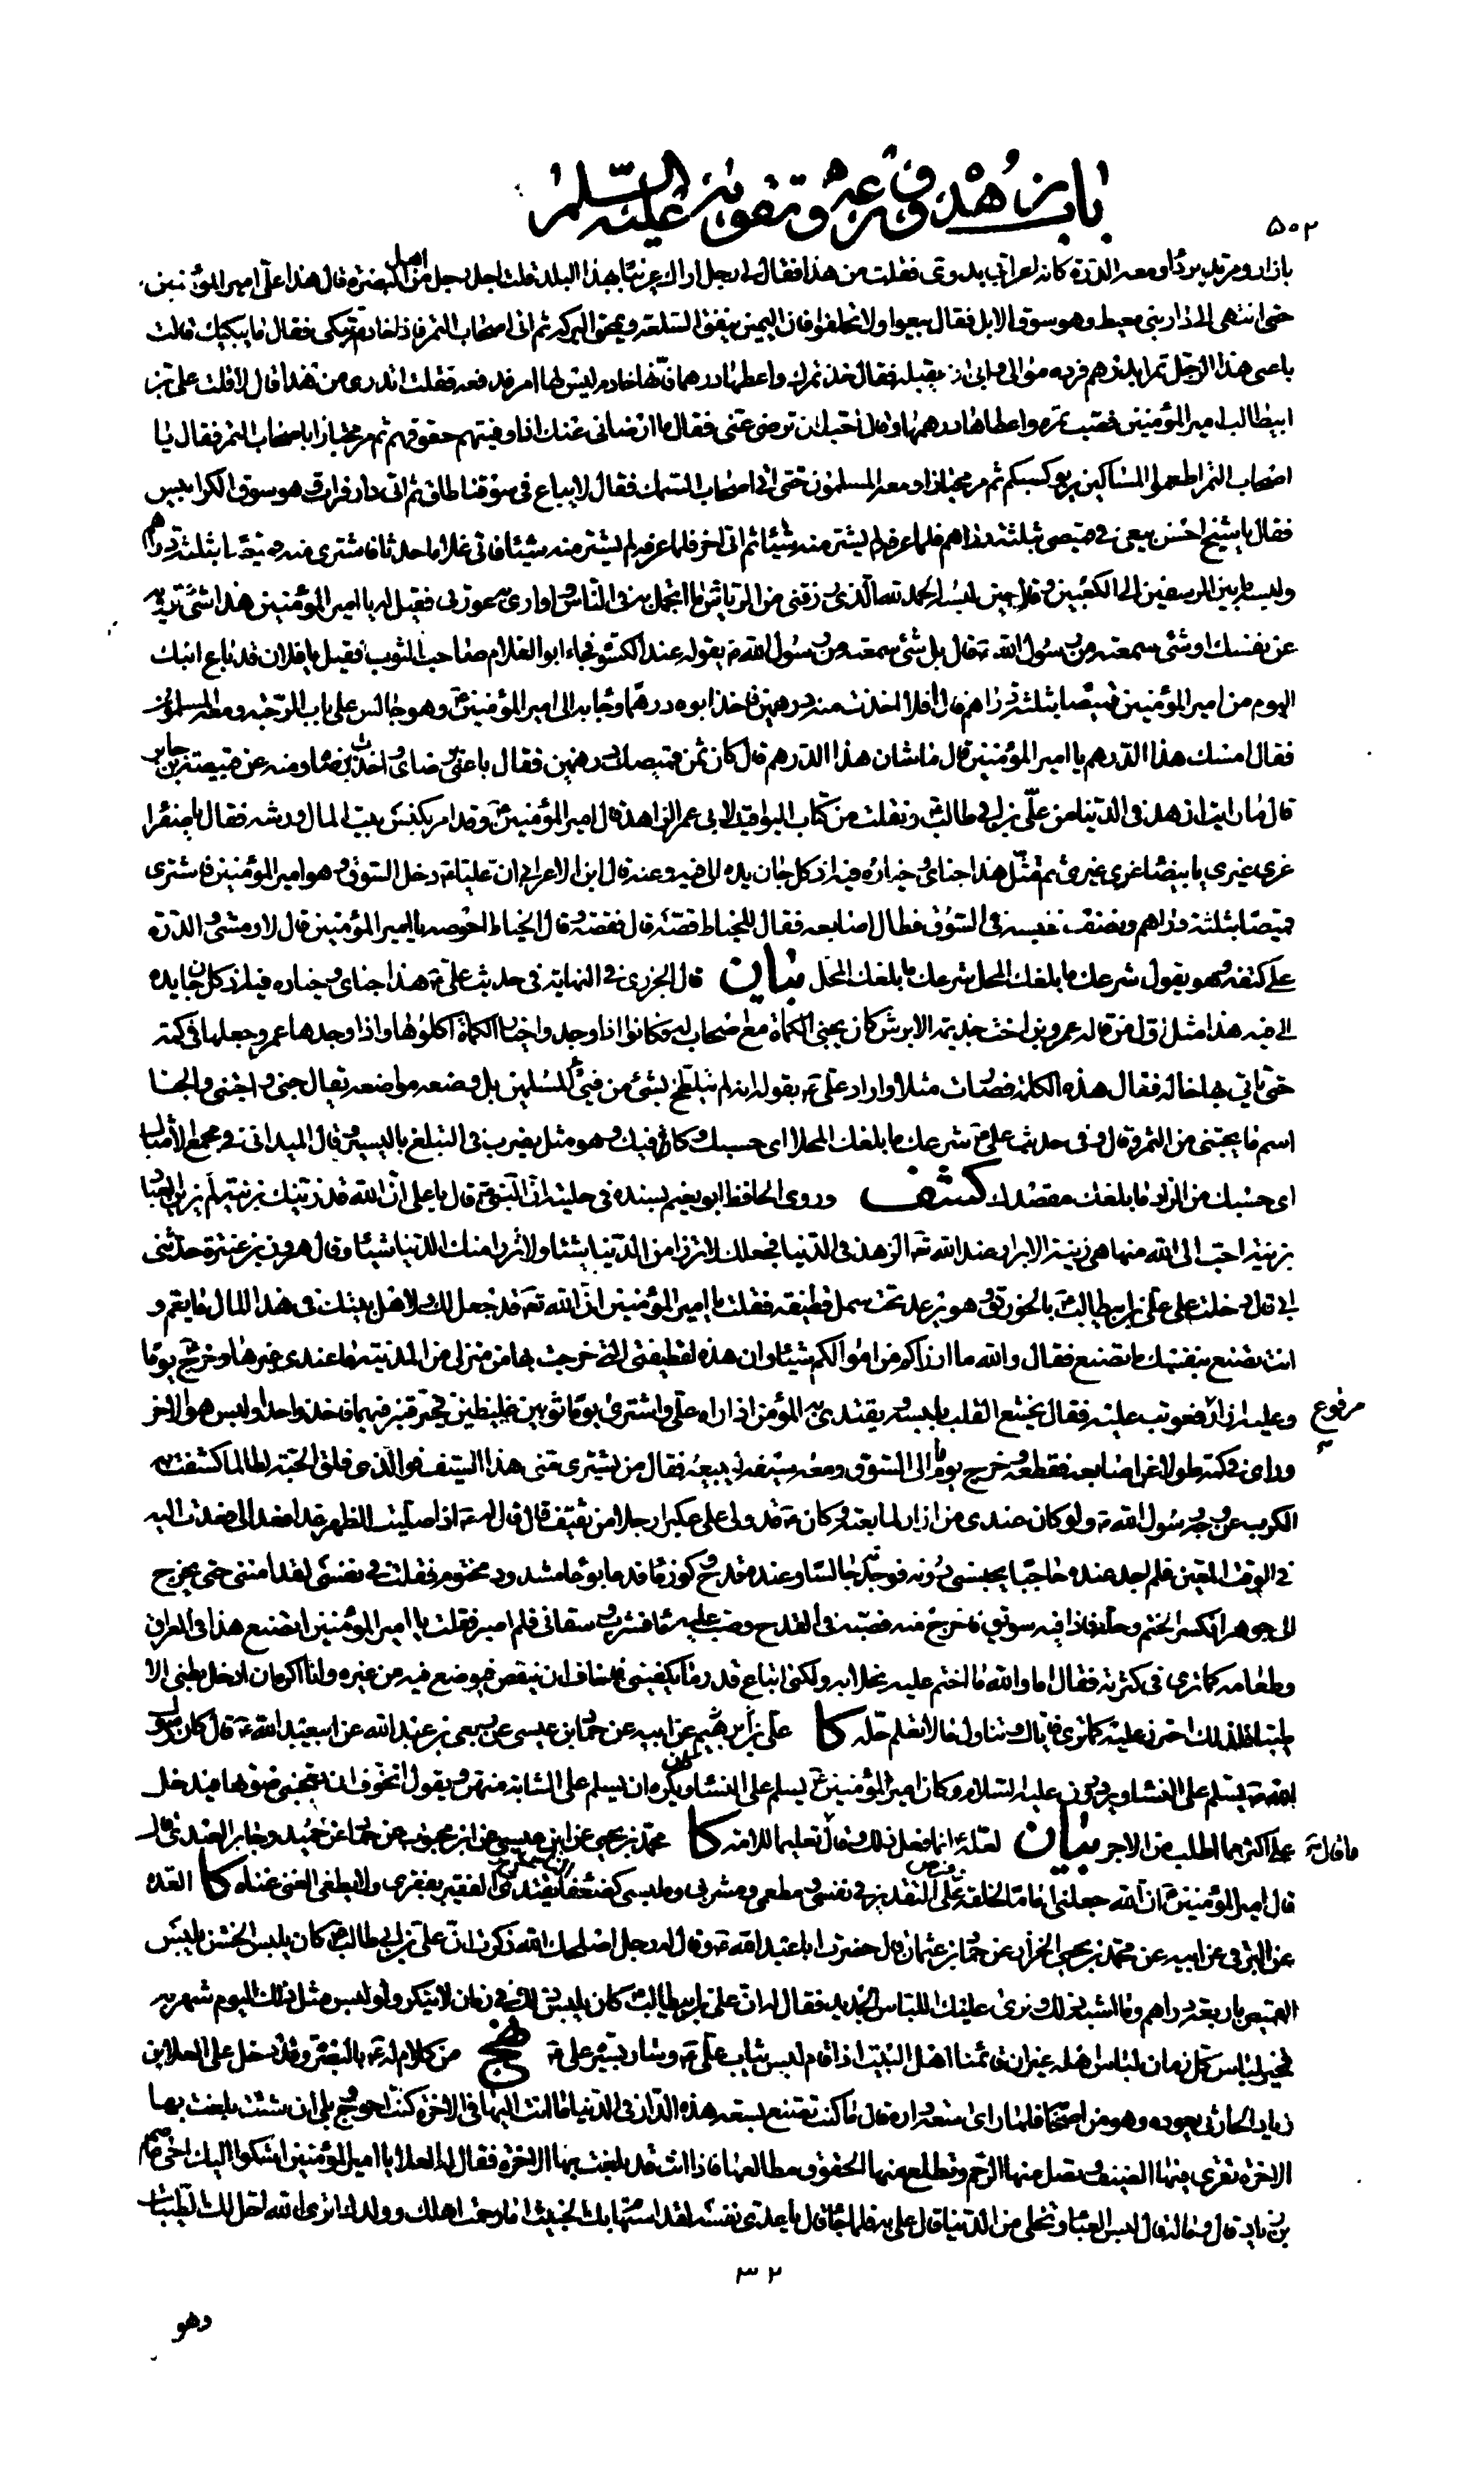 باب زهده و ورعه و تقویه علیه السلم
۵۰۲
بازار ومرتد بردا ومعه الدرة كانه اعرابي بدوي فقلت من هذا فقال لي رجل اراك غريبا بهذا البلد قلت اجل رجل من اهل البصرة قال هذا علي امير المؤمنين
حتى انتهى الى دار بني معيط وهو سوق الابل فقال بيعوا ولا تحلفوا فان اليمين ينفق السلعة ويمحق البركة ثم اتى اصحاب التمر فاذا خادمة تبكي فقال ما يبكيك قالت
باعني هذا الرجل تمرا بدرهم فرده موالي وابى ان يقبله فقال خذ تمرك واعطها درهما فانها خادم ليس لها امر فدفعه فقلت اتدري من هذا قال لا قلت علي بن
ابيطالب امير المؤمنين فصب تمره واعطاها درهمها وقال احب ان ترضى عني فقال ما ارضاني عنك اذا وفيتهم حقوقهم ثم مر مجتازا باصحاب التمر فقال يا
اصحاب التمر اطعموا المساكين يربو كسبكم ثم مر مجتازا ومعه المسلمون حتى اتى اصحاب السمك فقال لا يباع في سوقنا طاف ثم اتى دار فرات وهو سوق الكرابيس
فقال يا شيخ احسن بيعي في قميصي بثلثة دراهم فلما عرفه لم يشتر منه شيئا ثم اتى اخر فلما عرفه لم يشتر منه شيئا فاتى غلاما حدثا فاشترى منه قميصا بثلثة دراهم
ولبسه ما بين الرسغين الى الكعبين وقال حين لبسه الحمد لله الذي رزقني من الرياش ما اتجمل به في الناس واواري به عورتي فقيل له يا امير المؤمنين هذا شئ ترويه
عن نفسك او شئ سمعته من رسول الله ص قال بل شئ سمعته من رسول الله ص يقوله عند الكسوة فجاء ابو الغلام صاحب الثوب فقيل يا فلان قد باع ابنك
اليوم من امير المؤمنين قميصا بثلثة دراهم قال افلا اخذت منه درهمين فاخذ ابوه درهما وجاء به الى امير المؤمنين ع وهو جالس على باب الرحبة ومعه المسلمون
فقال امسك هذا الدرهم يا امير المؤمنين قال ما شان هذا الدرهم قال كان ثمن قميصك درهمين فقال باعني رضاي واخذت رضاه ومنه عن قبيصة بن جابر
قال ما رايت ازهد في الدنيا من علي بن ابي طالب ونقلت من كتاب اليواقيت لابي عمر الزاهد قال امير المؤمنين ع وقد امر بكنس بيت المال ورشه فقال يا صفرا
غري غيري يا بيضا غري غيري ثم تمثل هذا جناي وخياره فيه اذ كل جان يده الى فيه وعنه قال ابن الاعرابي ان عليا ع دخل السوق وهو امير المؤمنين فاشترى
قميصا بثلثة دراهم ونصف فلبسه في السوق فطال اصابعه فقال للخياط قصه قال فقصه وقال الخياط احوصه يا امير المؤمنين قال لا ومشى والدرة
على كتفه وهو يقول شرعك ما بلغك المحل شرعك ما بلغك المحل بيان قال الجزري في النهاية في حديث علي ع هذا جناي وخياره فيه اذ كل جان يده
الى فيه هذا مثل اول من قاله عمرو بن اخت جذيمة الابرش كان يجني الكماة مع اصحاب له فكانوا اذا وجدوا خيار الكماة اكلوها واذا وجدها عمرو جعلها في كمه
حتى ياتي بها خاله فقال هذه الكلمة فصارت مثلا واراد علي ع بقوله انه لم يتلطخ بشئ من فيئ المسلمين بل وضعه مواضعه يقال جنى واجتنى والجنا
اسم ما يجتنى من الثمر وقال وفي حديث علي ع شرعك ما بلغك المحلا اي حسبك وكافيك وهو مثل يضرب في التبلغ باليسير وقال الميداني في مجمع الامثال
اي حسبك من الزاد ما بلغك مقصدك كشف وروى الحافظ ابو نعيم بسنده في حلية ان النبي ص قال يا علي ان الله قد زينك بزينة لم يزين العباد
بزينة احب الى الله منها هي زينة الابرار عند الله تع الزهد في الدنيا فجعلك لا ترزا من الدنيا شيئا ولا ترزا منك الدنيا شيئا وقال هرون بن عنترة حدثني
ابي قال دخلت على علي بن ابيطالب ع بالخورنق وهو يرعد تحت سمل قطيفة فقلت يا امير المؤمنين ان الله تع قد جعل لك ولاهل بيتك في هذا المال ما يعم و
انت تصنع بنفسك ما تصنع فقال والله ما ارزاكم من اموالكم شيئا وان هذه لقطيفتي التي خرجت بها من منزلي من المدينة ما عندي غيرها وخرج ع يوما
وعليه ازار مرقوع فعوتب عليه فقال يخشع القلب بلبسه ويقتدي به المؤمن اذا راه علي واشترى يوما ثوبين غليظين فخير قنبر فيهما فاخذ واحدا ولبس هو الاخر
وراى في كمه طولا عن اصابعه فقطعه وخرج يوما الى السوق ومعه سيفه ليبيعه فقال من يشتري مني هذا السيف فوالذي فلق الحبة لطالما كشفت به
الكرب عن وجه رسول الله ص ولو كان عندي من ازار لما بعته وكان ع قد ولى على عكبرا رجلا من ثقيف قال قال له ع اذا صليت الظهر غدا فعد الي فعدت اليه
في الوقت المعين فلم اجد عنده حاجبا يحبسني دونه فوجدته جالسا وعنده قدح وكوز ماء فدعا بوعاء مشدود مختوم فقلت في نفسي لقد امنني حتى يخرج
الي جوهرا فكسر الختم وحله فاذا فيه سويق فاخرج منه فصبه في القدح وصب عليه ماء فشرب وسقاني فلم اصبر فقلت يا امير المؤمنين اتصنع هذا في العراق
وطعامه كما ترى في كثرته فقال اما والله ما اختم عليه بخلا به ولكني ابتاع قدر ما يكفيني فاخاف ان ينقص فيوضع فيه من غيره وانا اكره ان ادخل بطني الا
طيبا فلذلك احترز عليه كما ترى فاياك وتناول ما لا تعلم حله كا علي بن ابرهيم عن ابيه عن حماد بن عيسى عن ربعي بن عبد الله عن ابيعبد الله ع قال كان رسول
الله ص يسلم على النساء ويرددن عليه السلام وكان امير المؤمنين ع يسلم على النساء وكان يكره ان يسلم على الشابة منهن ويقول اتخوف ان يعجبني صوتها فيدخل
علي اكثر مما اطلب من الاجر بيان لعله ع انما فعل ذلك وقال ما قال ع تعليما للامة كا محمد بن يحيى عن ابن عيسى عن ابن محبوب عن حماد عن حميد وجابر العبدي قال
قال امير المؤمنين ع ان الله جعلني اماما لخلقه ففرض علي التقدير في نفسي ومطعمي ومشربي وملبسي كضعفاء الناس كي يقتدي الفقير بفقري ولا يطغى الغني غناه كا العدة
عن البرقي عن ابيه عن محمد بن يحيى الخزاز عن حماد بن عثمان قال حضرت ابا عبد الله ع وقال له رجل اصلحك الله ذكرت ان علي بن ابي طالب ع كان يلبس الخشن يلبس
القميص باربعة دراهم وما اشبه ذلك ونرى عليك اللباس الجديد فقال له ان علي بن ابيطالب ع كان يلبس ذلك في زمان لا ينكر ولو لبس مثل ذلك اليوم شهر به
فخير لباس كل زمان لباس اهله غير ان قائمنا اهل البيت اذا قام لبس ثياب علي ع وسار بسيرة علي ع نهج من كلام له ع بالبصرة وقد دخل على العلا بن
زياد الحارثي يعوده وهو من اصحابه فلما راى سعة داره قال ما كنت تصنع بسعة هذه الدار في الدنيا اما انت اليها في الاخرة كنت احوج وبلى ان شئت بلغت بها
الاخرة تقري فيها الضيف وتصل منها الرحم وتطلع منها الحقوق مطالعها فاذا انت قد بلغت بها الاخرة فقال له العلا يا امير المؤمنين اشكو اليك اخي عاصم
بن زياد قال وما له قال لبس العباء وتخلى من الدنيا قال علي به فلما جاء قال يا عدي نفسه لقد استهام بك الخبيث اما رحمت اهلك وولدك اترى الله احل لك الطيبات
۳۲
وهو